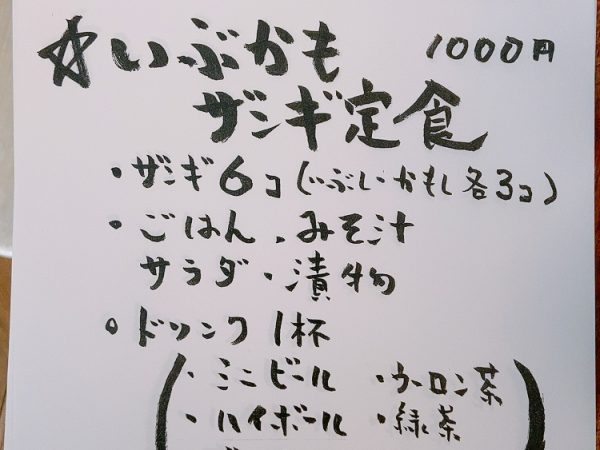 ☆いぶかも 1000円
ザンギ定食
・ザンギ6コ(いぶし かもし各3コ)
・ごはん、みそ汁
サラダ・漬物
・ドリンク1杯
(・ミニビール ・ウーロン茶
・ハイボール ・緑茶)